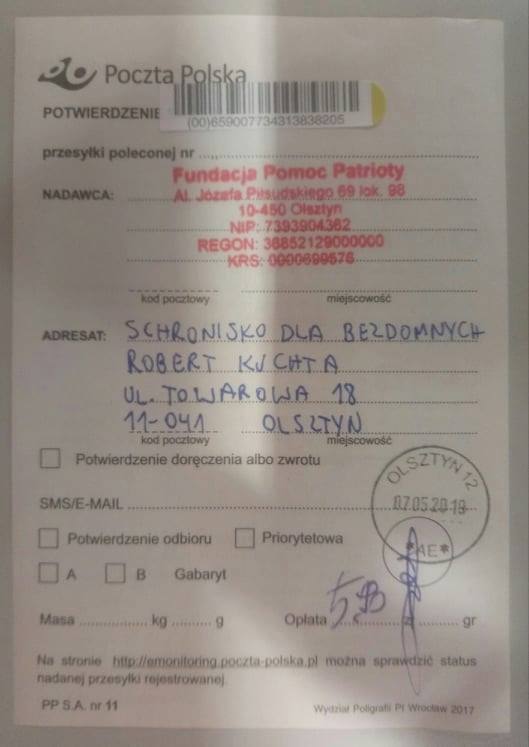 Poczta Polska
POTWIERDZENIE
(00)659007734313838205
przesyłki poleconej nr
Fundacja Pomoc Patrioty
NADAWCA: Al. Józefa Piłsudskiego 69 lok. 98
10-450 Olsztyn
NIP: 7393904362
REGON: 36852129000000
KRS: 0000699576
kod pocztowy miejscowość
ADRESAT: SCHRONISKO DLA BEZDOMNYCH
ROBERT KUCHTA
UL. TOWAROWA 18
11-041 OLSZTYN
kod pocztowy miejscowość
Potwierdzenie doręczenia albo zwrotu
OLSZTYN 12
SMS/E-MAIL
07.05.2019
Potwierdzenie odbioru Priorytetowa
*AE*
A B Gabaryt
Masa kg g Opłata zł gr
Na stronie http://emonitoring.poczta-polska.pl można sprawdzić status
nadanej przesyłki rejestrowanej.
PP S.A. nr 11 Wydział Poligrafii PI Wrocław 2017